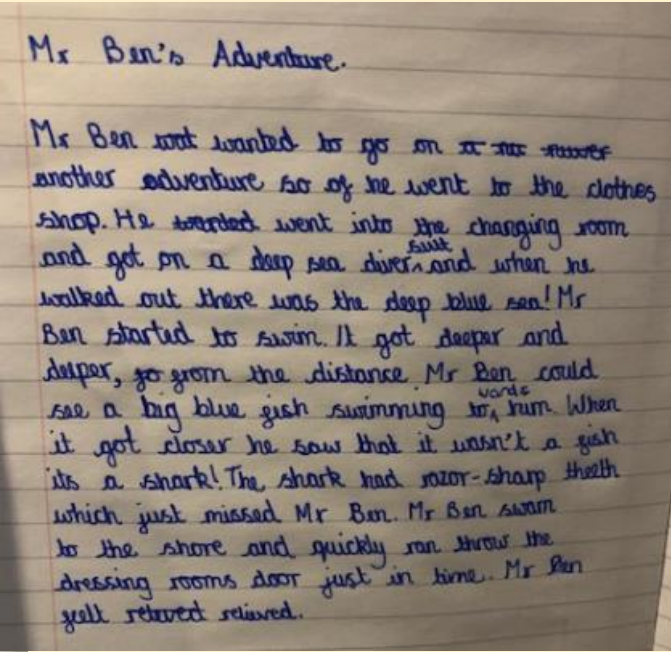 Mr Ben's Adventure.
Mr Ben wat wanted to go on
another adventure so of he went to the clothes
shop. He wanted went into the changing room
and got on a deep sea diver suit and when he
walked out there was the deep blue sea! Mr
Ben started to swim. It got deeper and
deeper, fo from the distance Mr Ben could
see a big blue fish swimming towards him. When
it got closer he saw that it wasn't a fish
its a shark! The shark had razor-sharp theeth
which just missed Mr Ben. Mr Ben swam
to the shore and quickly ran throw the
dressing rooms door just in time. Mr Ben
felt releved relieved.